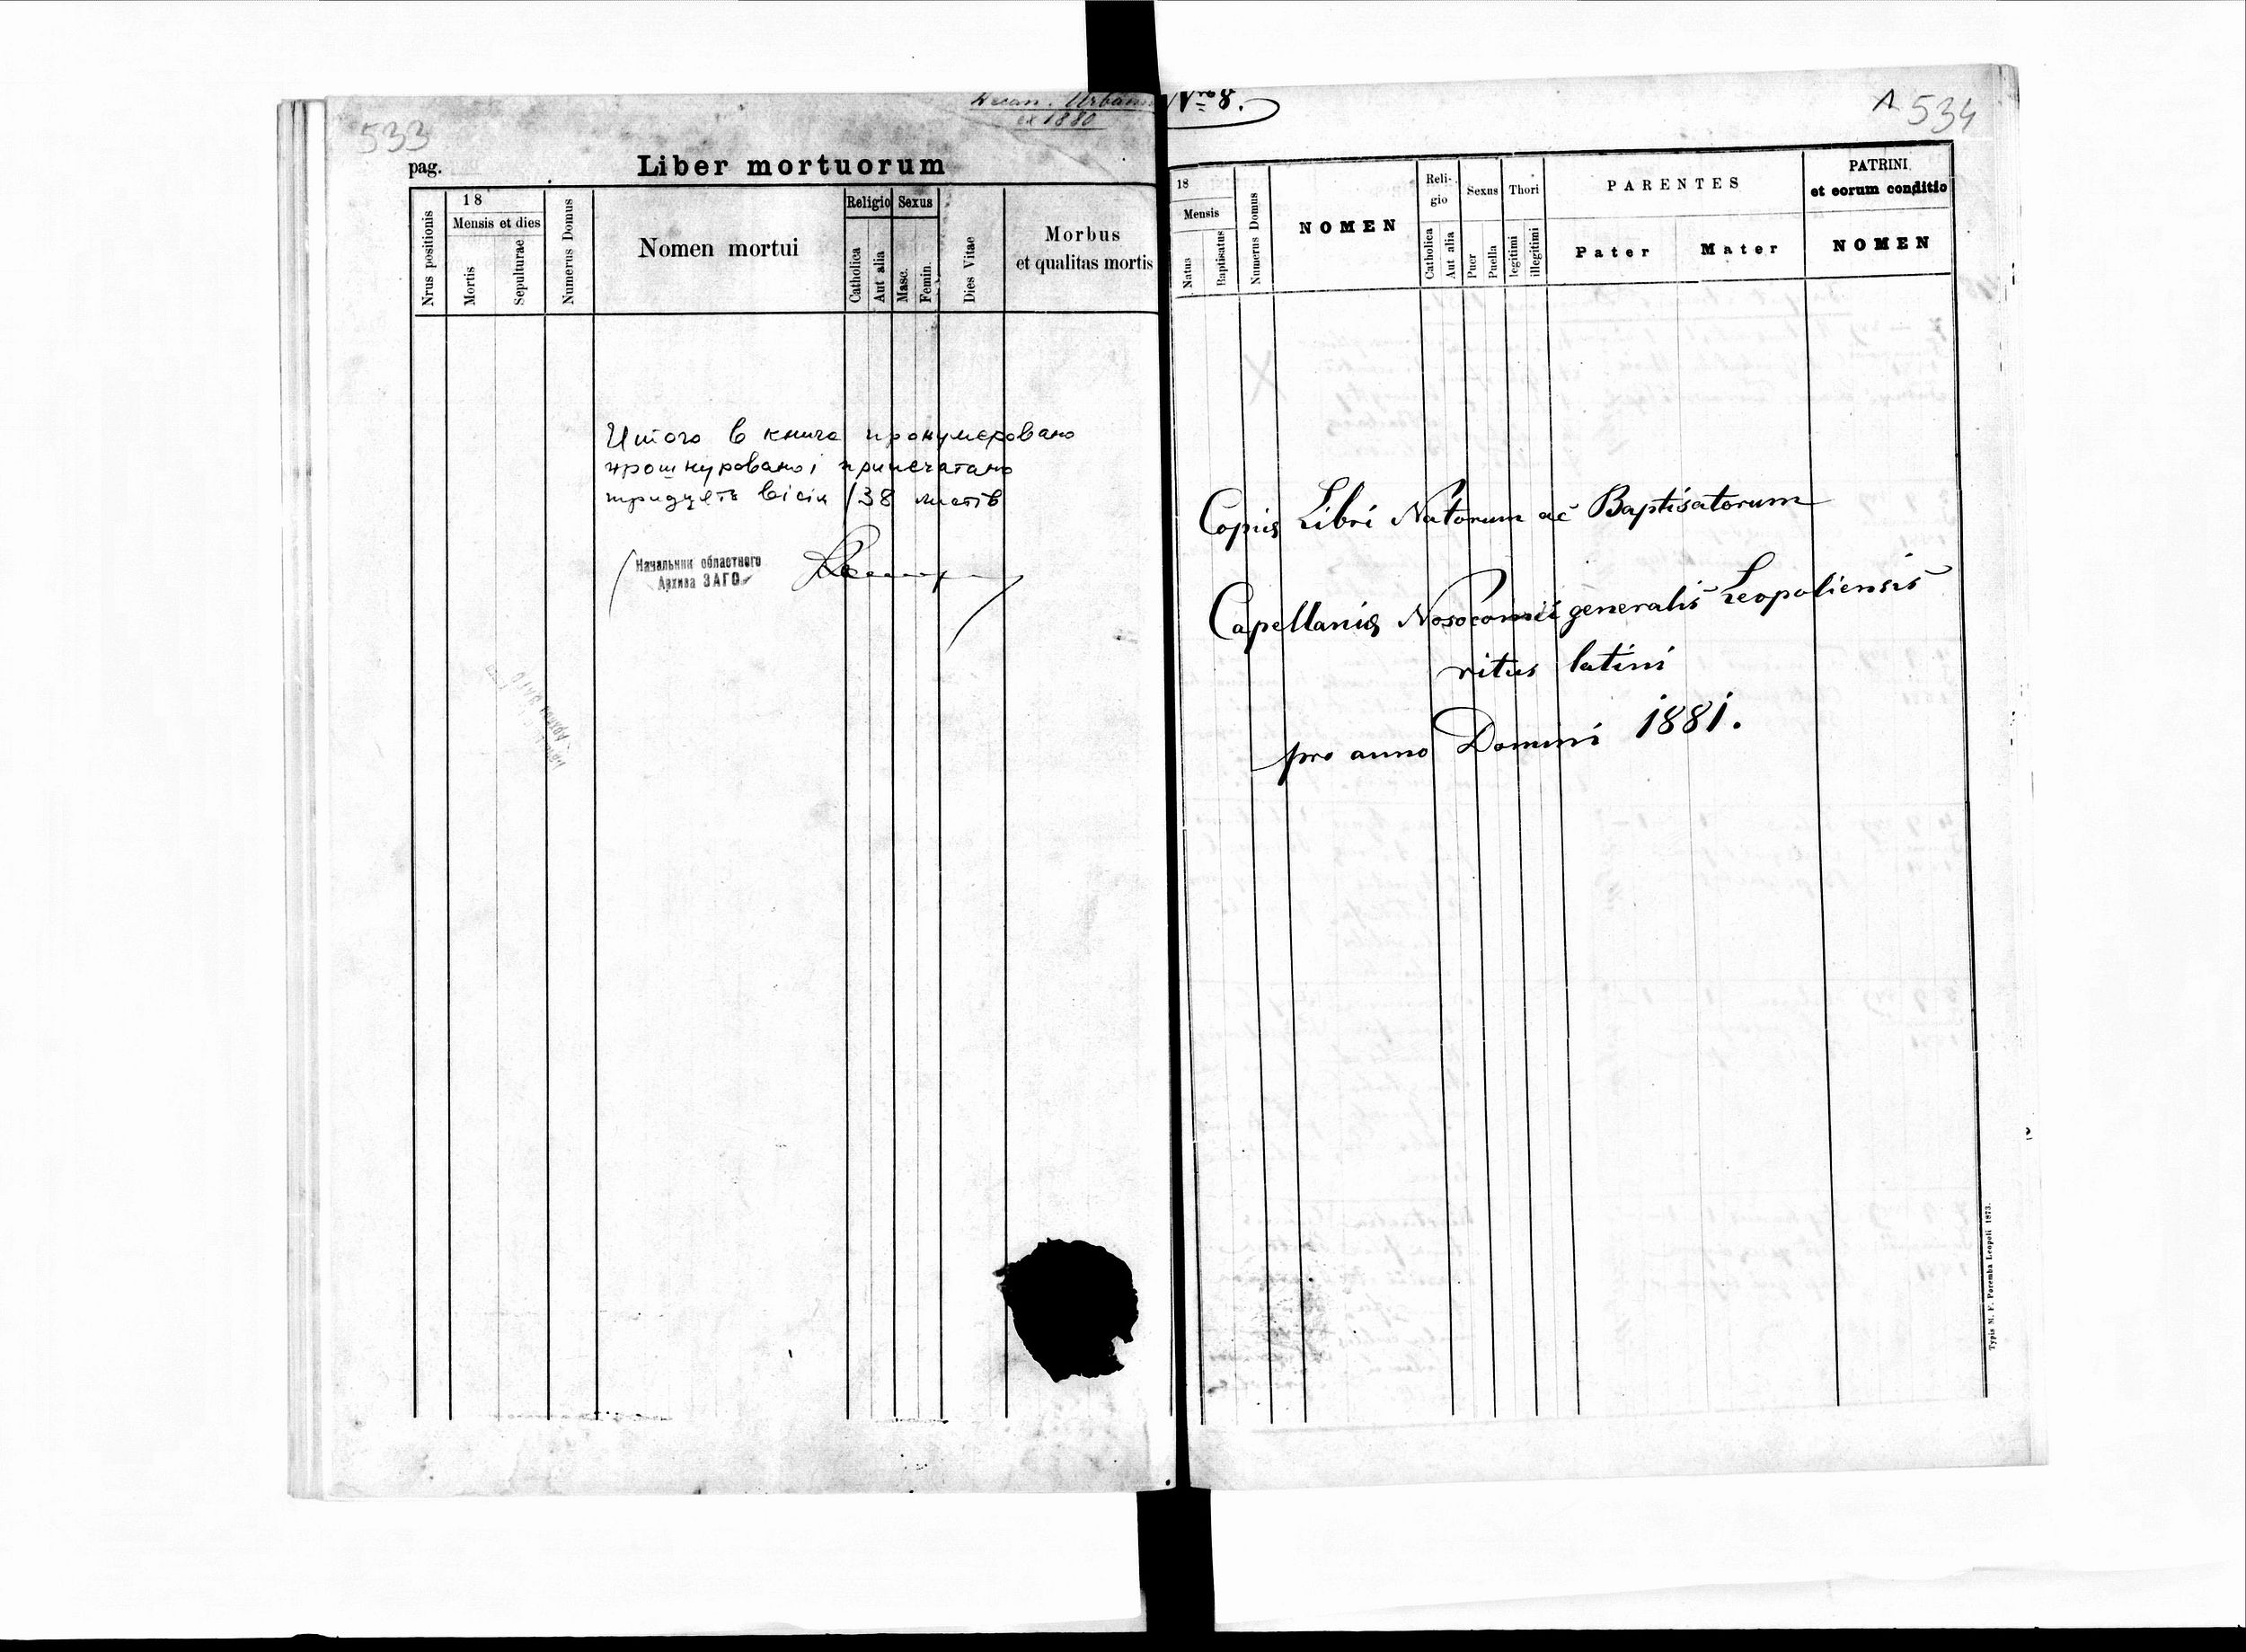 533
Decan. Urbanus
ex 1880
pag.
Liber mortuorum
Nrus positionis
18
Mensis et dies
Mortis
Sepulturae
Numerus Domus
Nomen mortui
Religio
Catholica
Aut alia
Sexus
Masc.
Femin.
Dies Vitae
Morbus
et qualitas mortis
Итого в книге пронумеровано
прошнуровано і припечатано
тридцять вісім /38 листів
Начальник областного
Архива ЗАГС
Nro 8.
1 534
18
Mensis
Natus
Baptisatus
Numerus Domus
NOMEN
Reli-
gio
Catholica
Aut alia
Sexus
Puer
Puella
Thori
legitimi
illegitimi
PARENTES
Pater
Mater
PATRINI
et eorum conditio
NOMEN
Copia Libri Natorum ac Baptisatorum
Capellania Nosocomii generalis Leopoliensis
ritus latini
pro anno Domini 1881.
Typis M. F. Poremba Leopoli 1873.